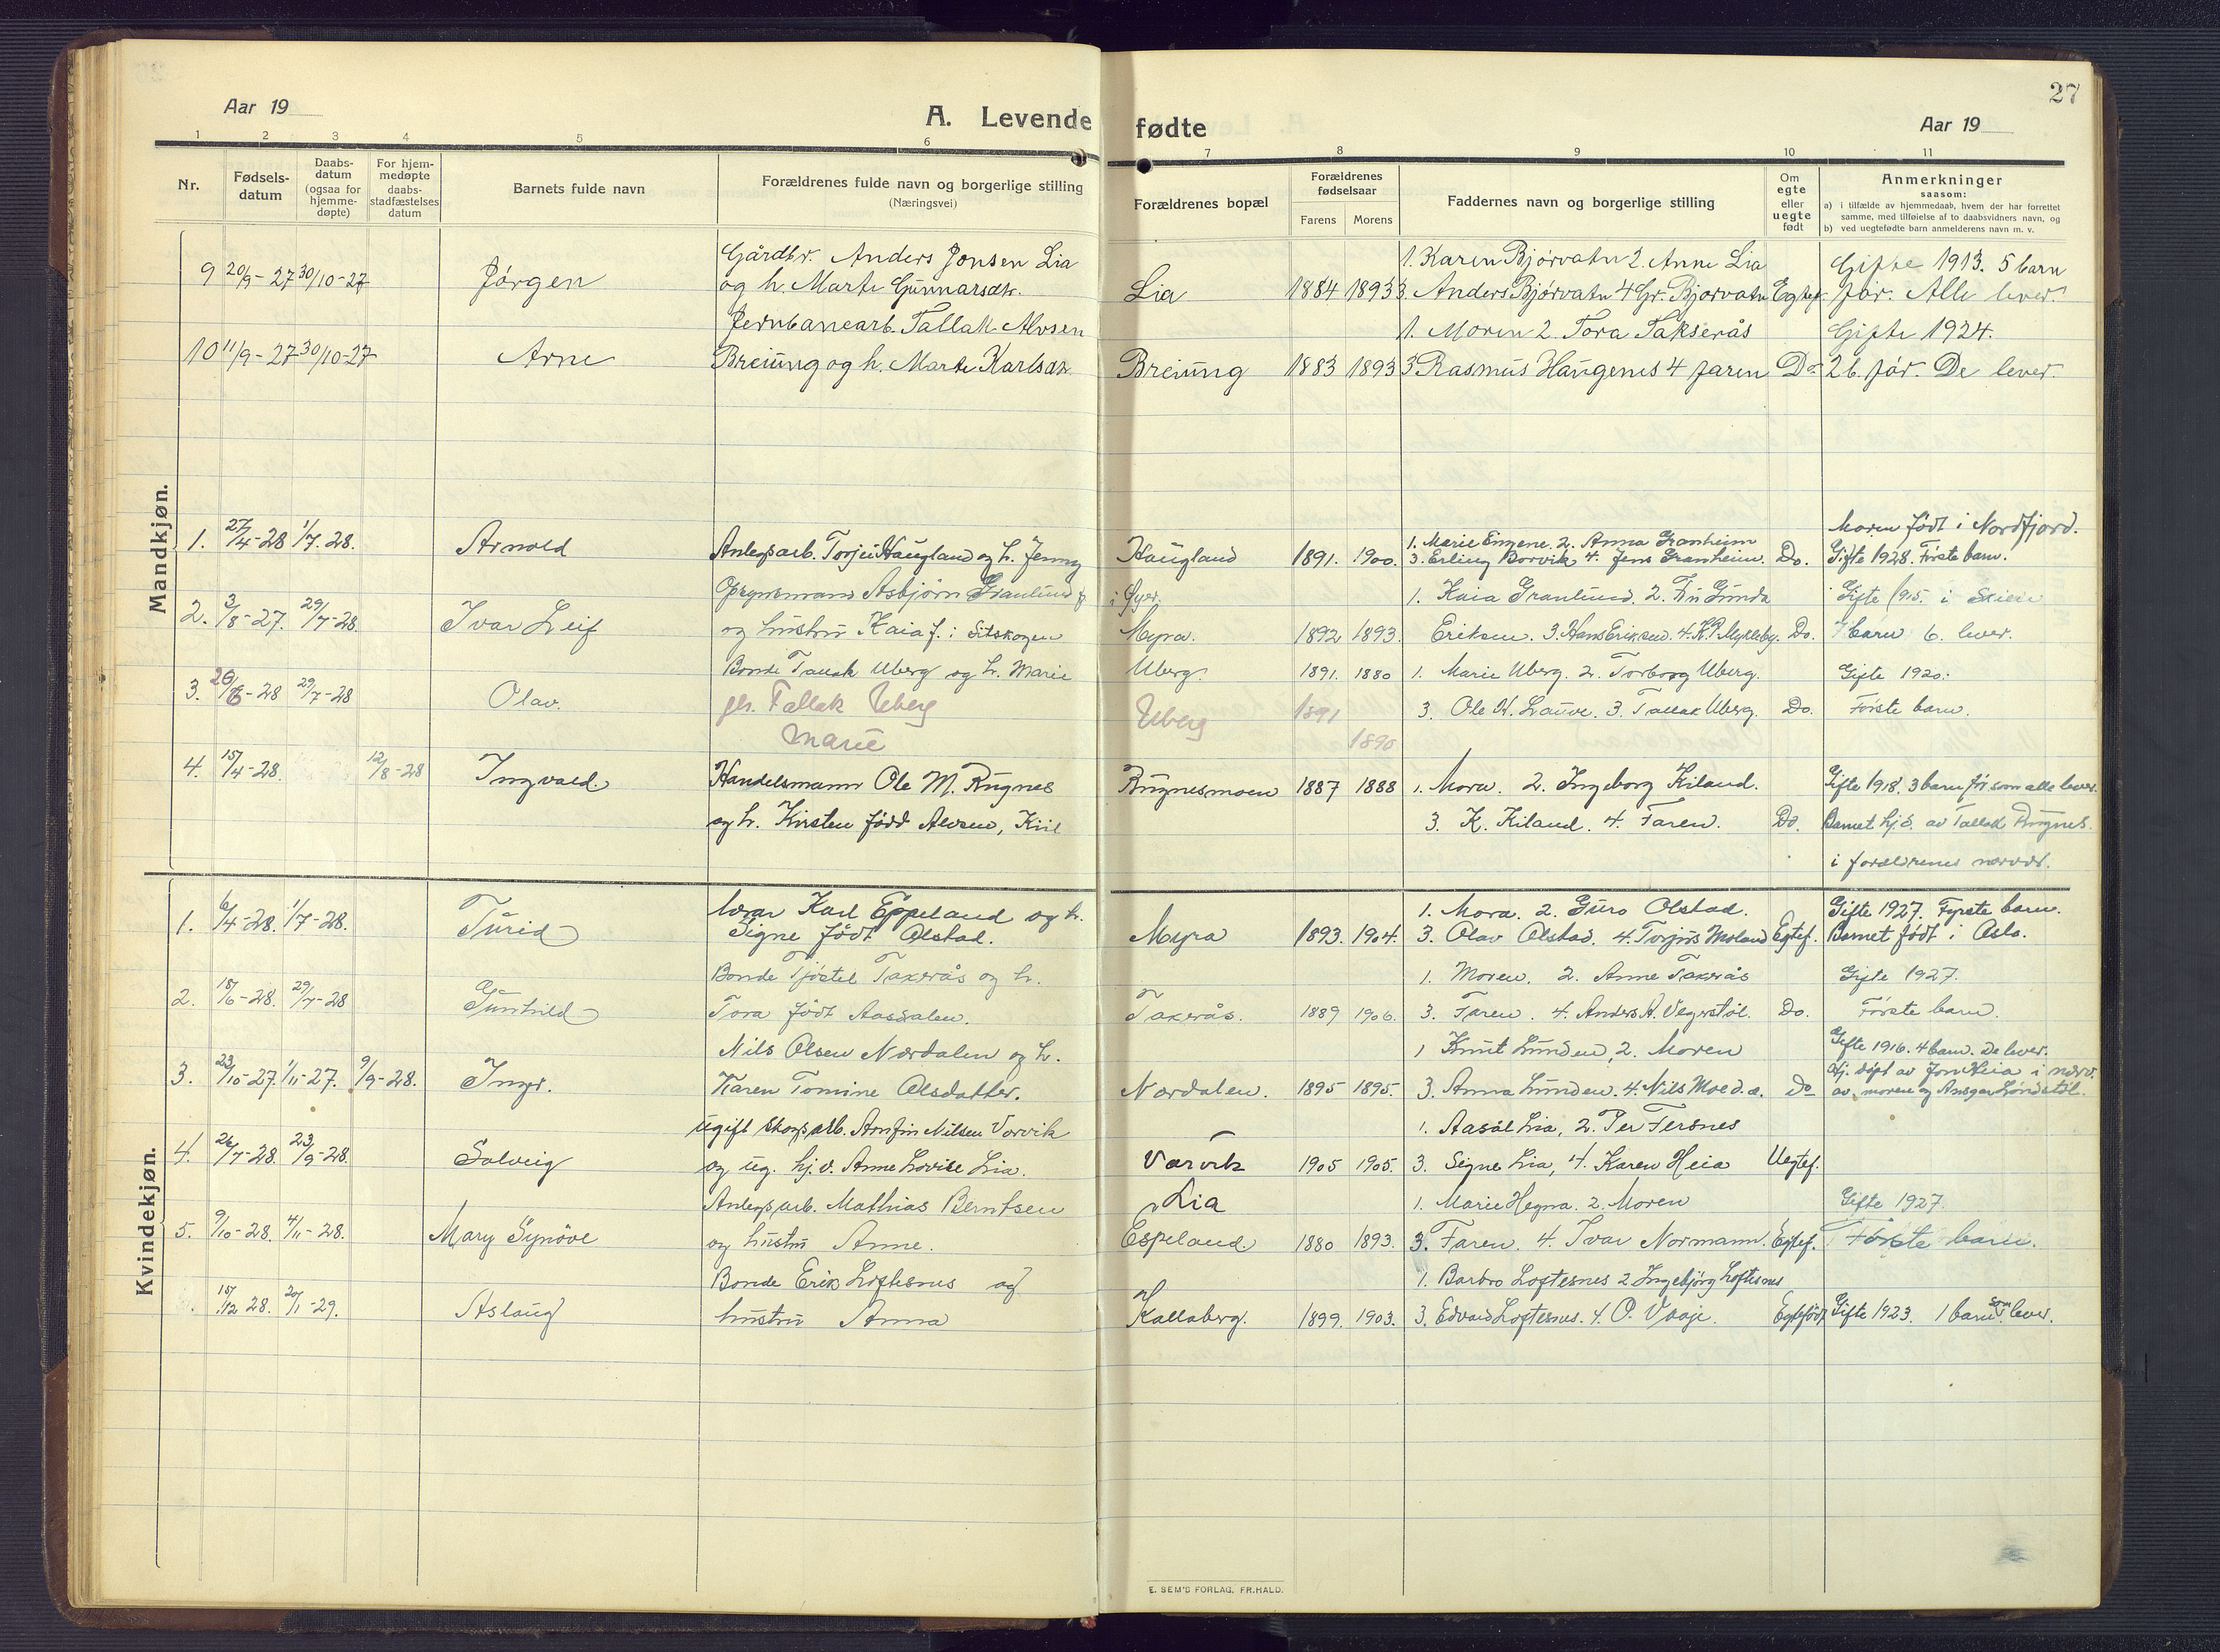 27
Aar 19
A. Levende fødte
Aar 19
1 2 3 4 5 6 7 8 9 10 11
Nr.
Fødsels-
datum
Daabs-
datum
(ogsaa for
hjemme-
døpte)
For hjem-
medøpte
daabs-
stadfæstelses
datum
Barnets fulde navn
Forældrenes fulde navn og borgerlige stilling
(Næringsvei)
Forældrenes bopæl
Forældrenes
fødselsaar
Farens Morens
Faddernes navn og borgerlige stilling
Om
egte
eller
uegte
født
Anmerkninger
saasom:
a) i tilfælde av hjemmedaab, hvem der har forrettet
samme, med tilføielse af to daabsvidners navn, og
b) ved uegtefødte barn anmelderens navn m. v.
Mandkjøn.
Gårdbr. Anders Jonsen Lia 1. Karen Bjørvatn 2. Anne Lia Gifte 1913. 5 barn
9 20/9-27 30/10-27 Jørgen og h. Marte Gunnarsdtr. Lia 1884 1893 3. Anders Bjørvatn 4 Gr. Bjorvatn Egtef. før. Alle lever.
Jernbanearb. Tallak Alvsen 1. Moren 2. Tora Takserås Gifte 1924.
10 11/9-27 30/10-27 Arne Breiung og h. Marte Karlsdtr. Breiung 1883 1893 3 Rasmus Haugenes 4 faren Do 2 b. før. De lever.
Moren født i Nordfjord.
1. Marie Simene. 2. Anna Granheim
1. 27/4-28 1/7-28. Arnold Anlegsarb. Torjei Haugland og h. Jenny Haugland 1891. 1900. 3. Erling Borvik 4. Jens Granheim. Do. Gifte 1928. Første barn.
Opsynsmann Asbjørn Granlund 1. Kaia Granlund. 2. Fru Gunda Gifte 1915. i Skien
2. 3/8-27. 29/7-28. Ivar Leif og hustru Kaia f. i Sitskogen Myra. 1892 1893. Eriksen. 3. Hans Eriksen. 4. K. P. Mykleby. Do. 7 barn 6. lever.
Bonde Tallak Uberg og h. Marie Uberg. 1891. 1880 1. Marie Uberg. 2. Torborg Uberg. Gifte 1920.
3. 20/6-28 29/7-28 Olav. gbr. Tallak Uberg Uberg 1891 3. Ole K. Lauve. 3. Tallak Uberg. Do. Første barn.
Marie 1890
4. 15/4-28. 12/8-28 Ingvald. Handelsmann Ole M. Rugnes Rugnesmoen 1887 1888 1. Mora. 2. Ingeborg Kiland. Gifte 1918. 3 barn før som alle lever.
og h. Kirsten født Alvsen, Kiil 3. K. Kiland. 4. Faren. Do. Barnet hj.d. av Tallak Rugnes.
i forældrenes nærvær.
Kvindekjøn.
Lærar Karl Eppeland og h. 1. Mora. 2. Guro Olstad. Gifte 1927. Fyrste barn.
1. 6/4-28. 1/7-28. Turid Signe født Olstad. Myra 1893. 1904. 3. Olav Olstad. 4. Torjus Moland Egtef. Barnet født i Oslo.
Bonde Tjøstel Takserås og h. 1. Moren. 2. Anne Takserås Gifte 1927.
2. 18/6-28. 29/7-28 Gunhild Tora født Aasdalen. Takserås. 1889 1906. 3. Faren. 4. Anders A. Vegerstøl. Do. Første barn.
Nils Olsen Nordalen og h. 1 Knut Lunden, 2. Moren Gifte 1916. 4 barn. De lever.
3. 23/10-27. 1/11-27. 9/9-28. Inger. Karen Tomine Olsdatter. Nordalen. 1895 1895. 3. Anna Lunden. 4. Nils Moe d.æ. Do Hj. døpt av Jon Heia i nærv.
av moren og Ansgar Løndstøl.
Ugift skogsarb. Arnfin Nilsen Vorvik 1. Aasal Lia, 2. Per Fersnes
4. 26/7-28. 23/9-28. Solveig og ug. hj.v. Anne Lovise Lia. Værvik 1905 1905. 3. Signe Lia, 4. Karen Heia Uegtef.
Anlegsarb. Mathias Berntsen Lia 1. Marie Hegna. 2. Moren Gifte 1927.
5. 9/10-28. 4/11-28. Mary Synøve og hustru Anne. Espeland. 1880 1893. 3. Faren. 4. Ivar Normann. Egtef. Første barn.
Bonde Erik Loftesnes og 1. Barbro Loftesnes 2 Ingebjørg Loftesnes
15/12 28. 20/1-29. Aslaug hustru Anna Kallaberg. 1899. 1903. 3. Edvard Loftesnes. 4. O. Vaaje. Egtefødt Gifte 1923. 1 barn som lever.
E. SEM'S FORLAG. FR.HALD.